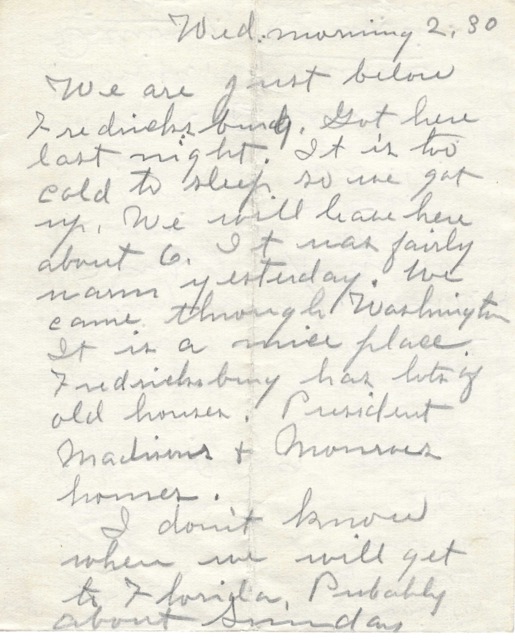 Wed. morning 2,30
We are just below
Fredricksburg. Got here
last night. It is too
cold to sleep so we got
up. We will leave here
about 6. It was fairly
warm yesterday. We
came through Washington
It is a nice place.
Fredricksburg has lots of
old houses. President
Madisons + Monroes
homes.
I don't know
when we will get
to Florida. Probably
about Sunday